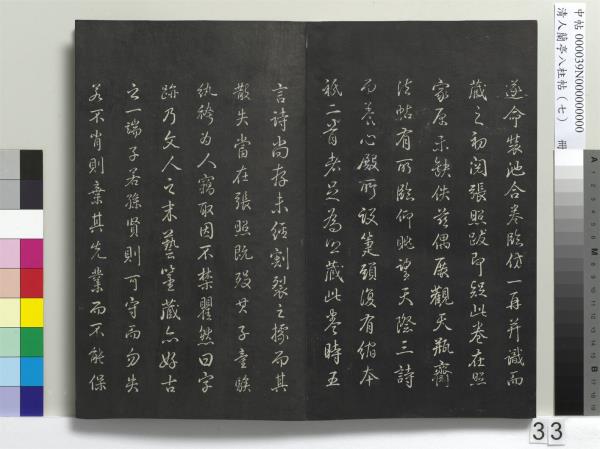 遂命裝池合卷臨仿一再并識而
藏之初閱張照跋即疑此卷在照
家原未缺佚茲偶展觀天瓶齋
法帖有所臨仰眺望天際三詩
而養心殿所設篷頭復有縮本
祇二首者足為照藏此卷時五
言詩尚存未經割裂之據而其
散失當在張照既歿其子童騃
紈袴為人竊取因不禁瞿然曰字
跡乃文人之末藝篋藏亦好古
之一端子若孫賢則可守而勿失
若不肖則棄其先業而不能保
中帖 000039N000000000
清人蘭亭八柱帖（七） 冊
33
A
M
B